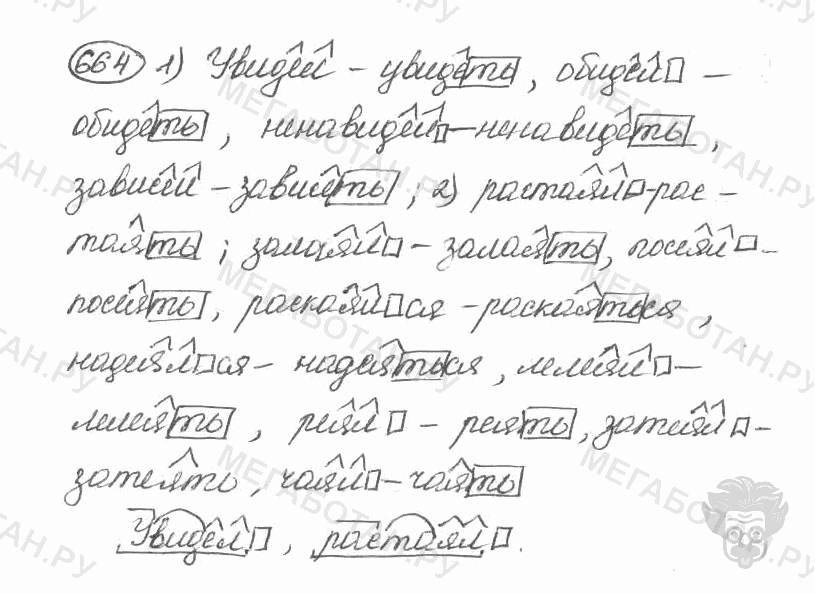 664 1) Увидел – увидеть, обидел –
обидеть, ненавидел – ненавидеть,
зависел – зависеть; 2) растаял – рас-
таять; залаял – залаять, посеял –
посеять, раскаялся – раскаяться,
надеялся – надеяться, лелеял –
лелеять, реял – реять, затеял –
затеять, чаял – чаять
Увидел, растаял.
МЕГАБОТАН.РУ